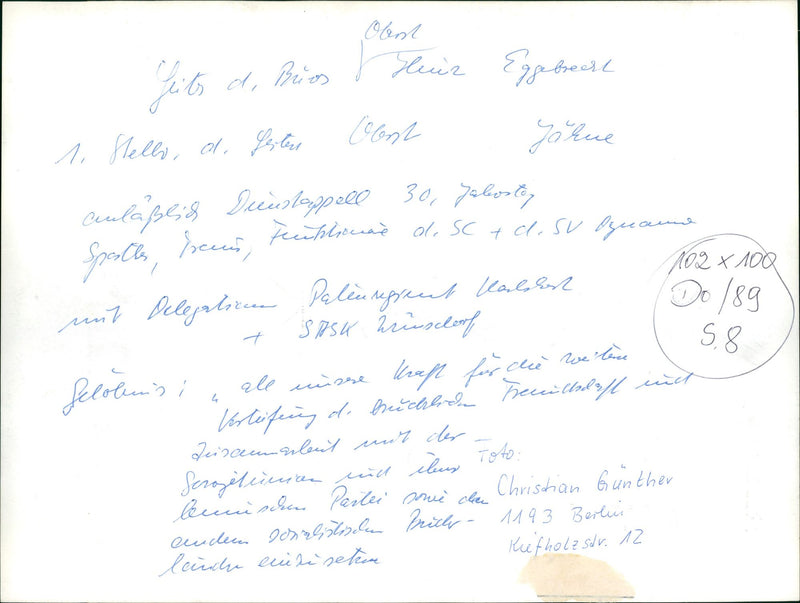 Oberst
Leiter d. Büros Heinz Eggebrecht
1. Stellv. d. Leiters Oberst Jähne
anläßlich Dienstappell 30. Jahrestag
Sportler, Trainer, Funktionäre d. SC + d. SV Dynamo
mit Delegationen Patenregiment Karlshorst
+ SASK Wünsdorf
Gelöbnis: „alle unsere Kraft für die weitere
Vertiefung d. brüderlichen Freundschaft und
Zusammenarbeit mit der
Sowjetunion und ihrer
leninschen Partei sowie den
anderen sozialistischen Bruder-
ländern einzusetzen
102 x 100
Do/89
S. 8
Foto:
Christian Günther
1193 Berlin
Kiefholzstr. 12